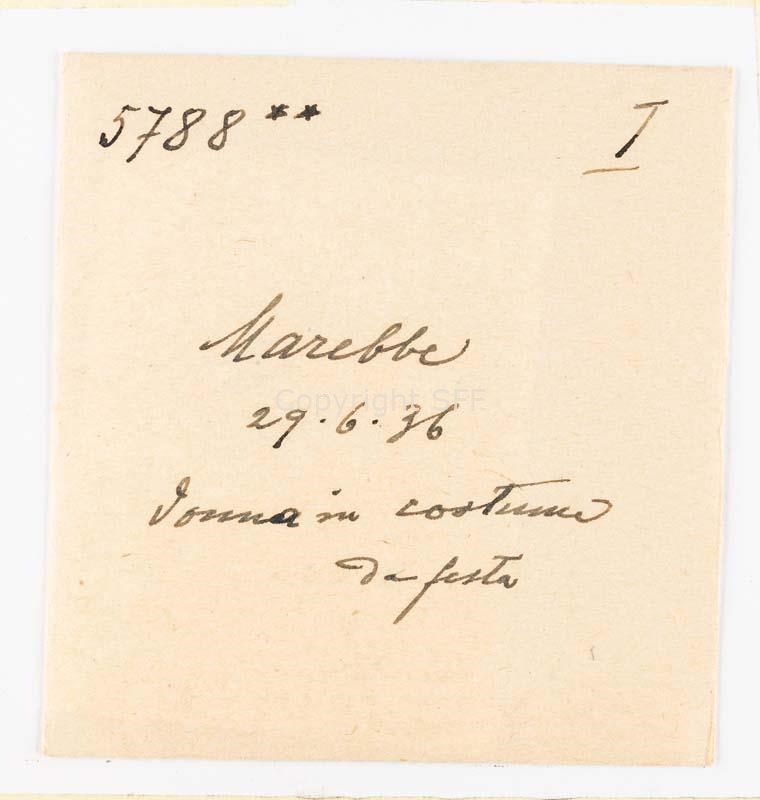 5788** I
Marebbe
Copyright SFE
29.6.36
donna in costume
da festa